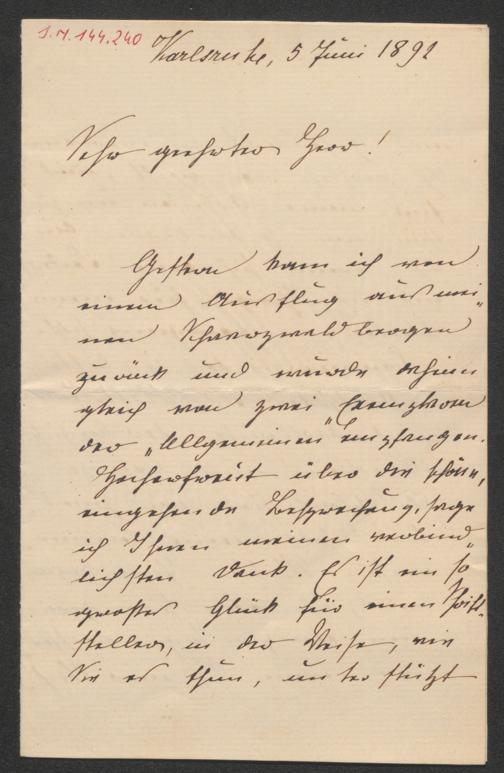 I.N. 144.240
Karlsruhe, 5 Juni 1892
Sehr geehrter Herr!
Gestern kam ich von
einem Ausflug aus mei„
nen Schwarzwaldbergen
zurück und wurde daheim
gleich von zwei Exemplaren
der „Allgemeinen“ empfangen.
Hocherfreut über die schöne,
eingehende Besprechung, sage
ich Ihnen meinen verbind„
lichsten Dank. Es ist ein so
großes Glück für einen Schrift„
steller, in der Weise, wie
Sie es thun, unterstützt